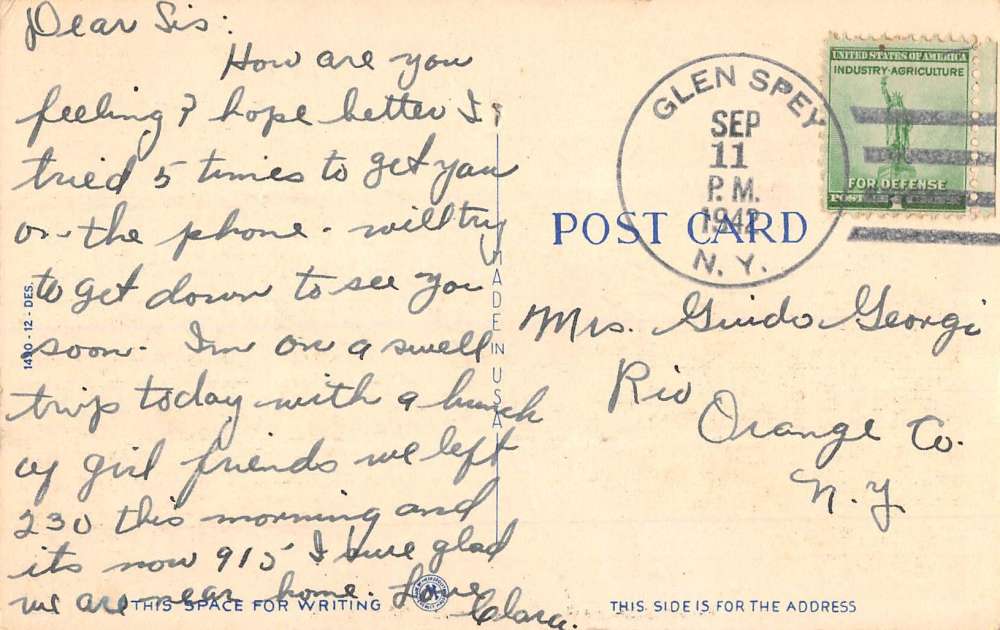 Dear Sis:
How are you
feeling? hope better I
tried 5 times to get you
on the phone - will try
to get down to see you
soon. Im on a swell
trip today with a bunch
of girl friends we left
230 this morning and
its now 915 I sure glad
we are near home. Love
Clara.
1490-12-DES.
THIS SPACE FOR WRITING
MADE IN USA
GLEN SPEY
SEP
11
P.M.
1942
N.Y.
UNITED STATES OF AMERICA
INDUSTRY·AGRICULTURE
FOR DEFENSE
POST CARD
Mrs. Guido Georgi
Rio
Orange Co.
N.Y.
THIS SIDE IS FOR THE ADDRESS